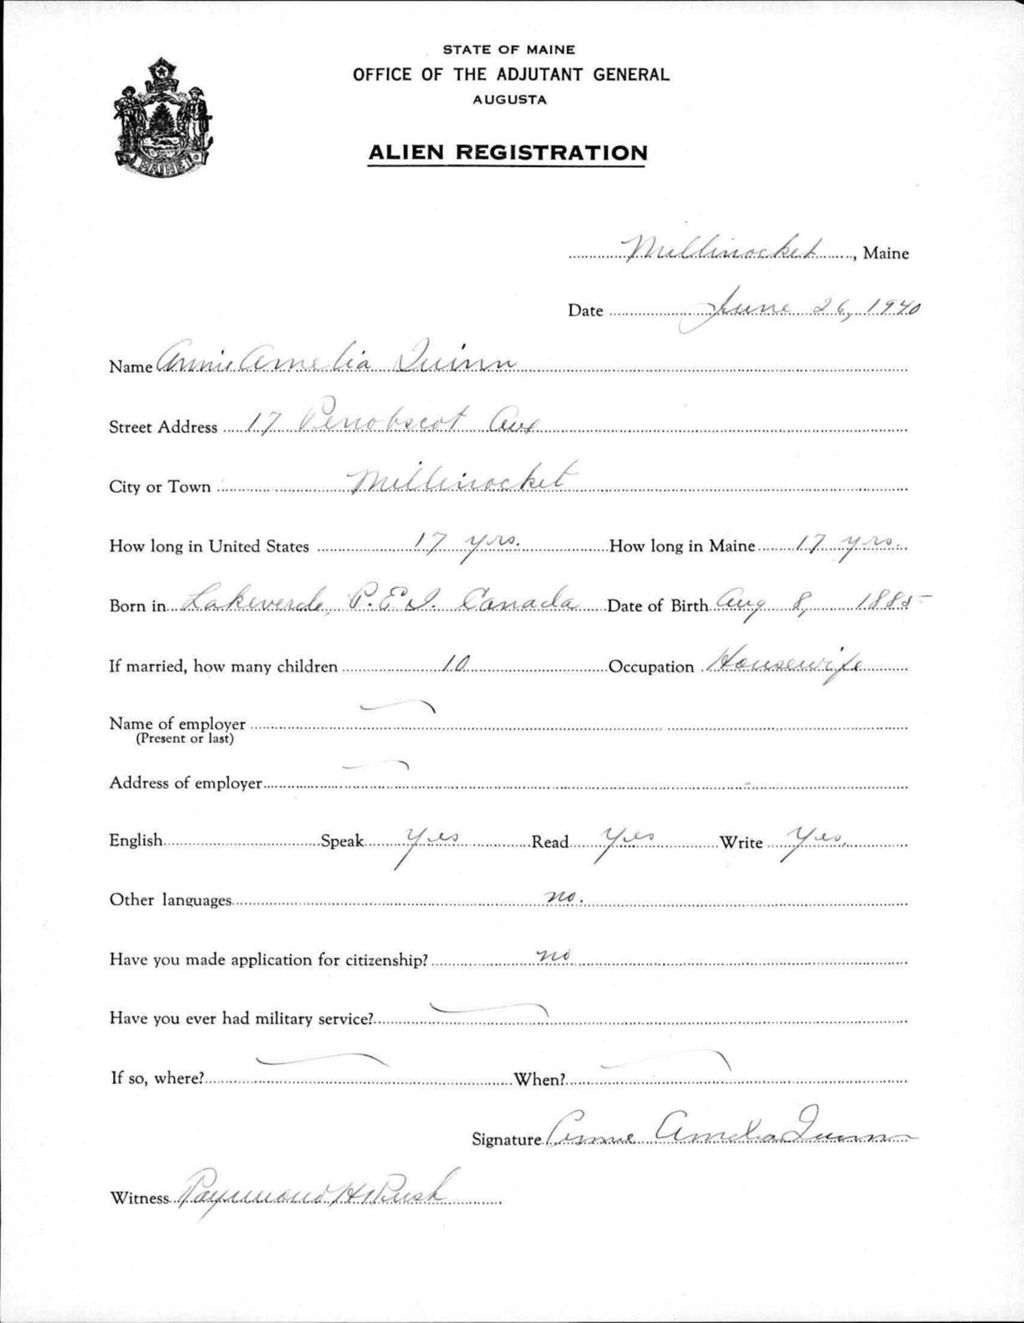 STATE OF MAINE
OFFICE OF THE ADJUTANT GENERAL
AUGUSTA
ALIEN REGISTRATION
Millinocket, Maine
Date June 26, 1940
Name Annie Amelia Quinn
Street Address 17 Penobscot Ave
City or Town Millinocket
How long in United States 17 yrs. How long in Maine 17 yrs.
Born in Lakeverde, P.E.I. Canada Date of Birth Aug 8, 1885
If married, how many children 10 Occupation Housewife
Name of employer
(Present or last)
Address of employer
English Speak Yes Read Yes Write Yes.
Other languages no.
Have you made application for citizenship? no
Have you ever had military service?
If so, where? When?
Signature Annie Amelia Quinn
Witness Raymond H Rush
MAINE